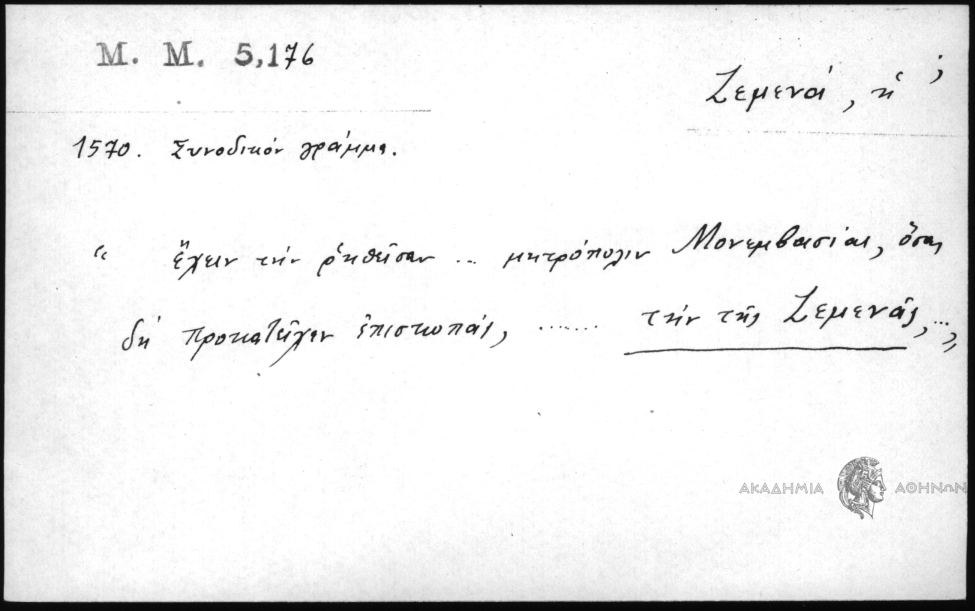 M. M. 5,176
Ζεμενά, ἡ ;
1570. Συνοδικόν γράμμα.
“ ἔχειν τήν ῥηθεῖσαν ... μητρόπολιν Μονεμβασίας, ὅσας
δή προκατεῖχεν ἐπισκοπάς, ....... τήν τῆς Ζεμενᾶς, ...”
ΑΚΑΔΗΜΙΑ ΑΘΗΝΩΝ